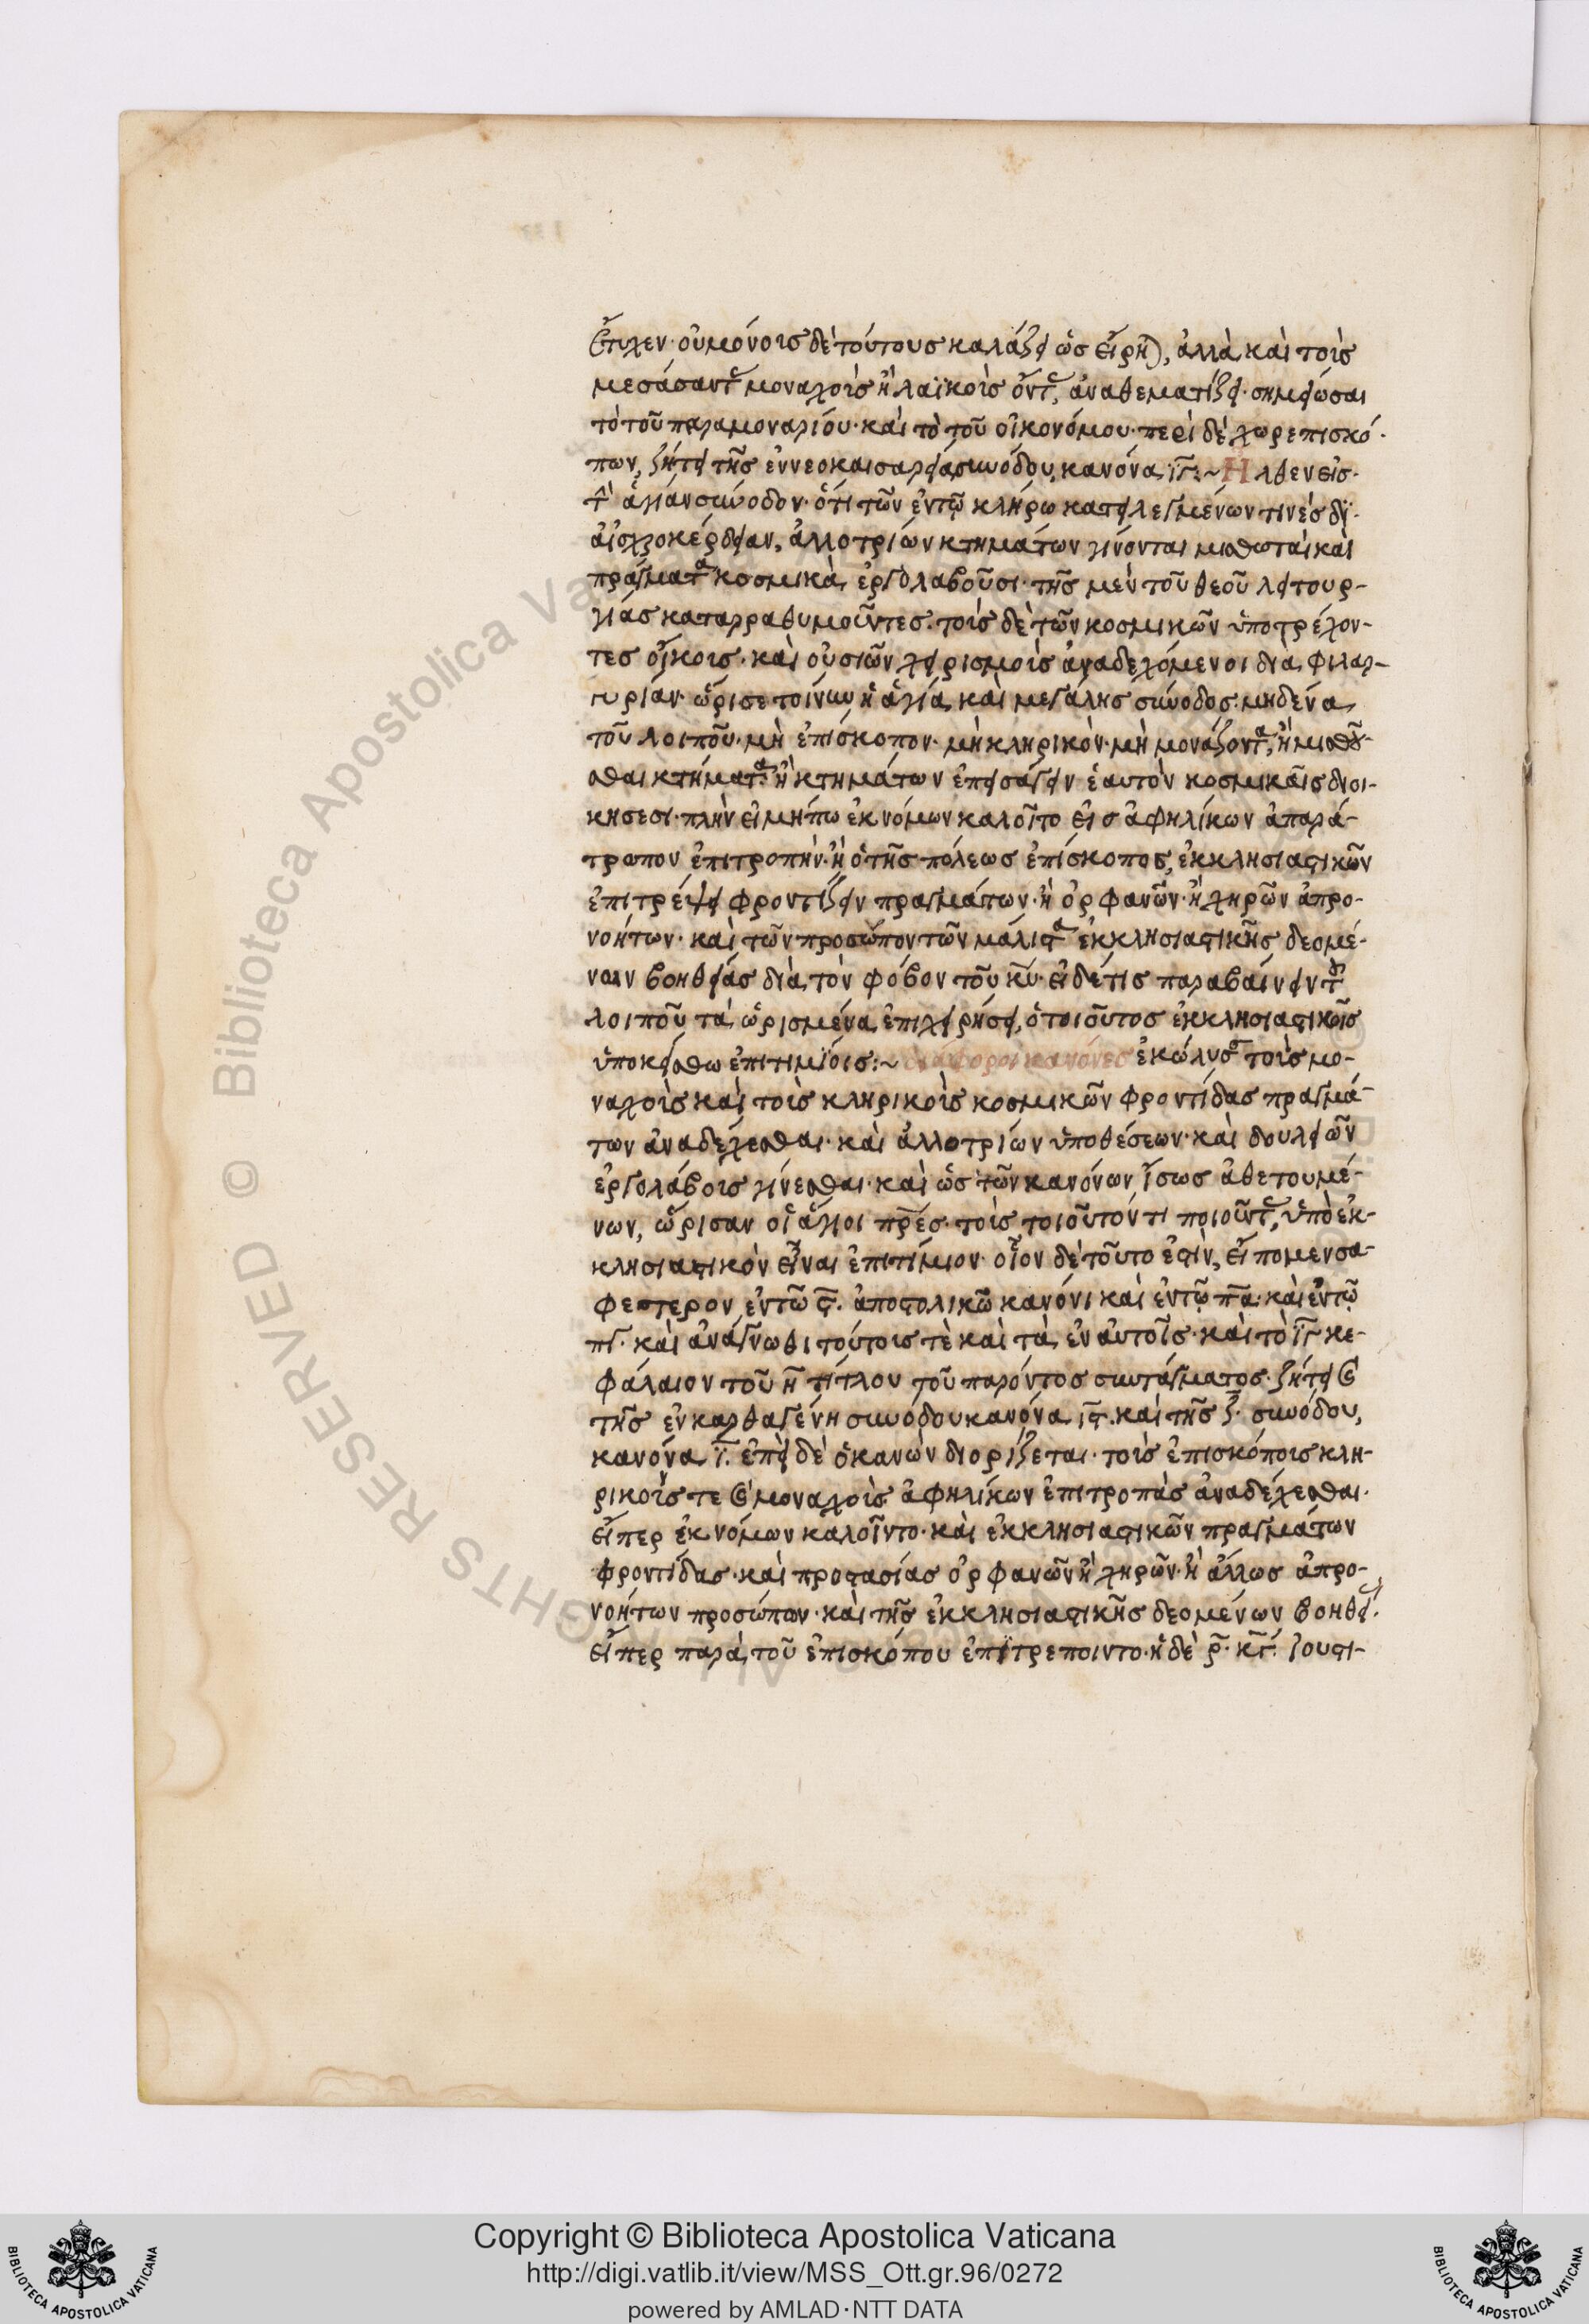 ἔτυχεν· οὐ μόνοις δὲ τούτους κολάζει ὡς εἴρηται, ἀλλὰ καὶ τοῖς
μεσάσαντας μοναχοῖς ἢ λαϊκοῖς ὄντας, ἀναθεματίζει· σημείωσαι
τὸ τοῦ παραμοναρίου· καὶ τὸ τοῦ οἰκονόμου· περὶ δὲ χωρεπισκό-
πων, ζήτει τῆς ἐν νεοκαισαρείᾳ συνόδου, κανόνα ιγ:~ Ἦλθεν εἰς
τὴν ἁγίαν σύνοδον· ὅτι τῶν ἐν τῷ κλήρω κατειλεγμένων τινὲς δι'
αἰσχροκέρδειαν, ἀλλοτρίων κτημάτων γίνονται μισθωταὶ καὶ
πράγματα κοσμικὰ ἐργολαβοῦσι· τῆς μὲν τοῦ θεοῦ λειτουρ-
γίας καταρραθυμοῦντες· τοῖς δὲ τῶν κοσμικῶν ὑποτρέχον-
τες οἴκοις· καὶ οὐσιῶν χειρισμοῖς ἀναδεχόμενοι διὰ φιλαρ-
γυρίαν· ὥρισε τοίνυν ἡ ἁγία καὶ μεγάλης σύνοδος· μηδένα
τοῦ λοιποῦ· μὴ ἐπίσκοπον· μὴ κληρικὸν· μὴ μονάζοντα, ἢ μισθοῦ-
σθαι κτήματα· ἢ κτημάτων ἐπεισάγειν ἑαυτὸν κοσμικαῖς διοι-
κήσεσι· πλὴν εἰ μήπω ἐκ νόμων καλοῖτο εἰς ἀφηλίκων ἀπαρά-
τρωπον ἐπιτροπήν· ἢ ὁ τῆς πόλεως ἐπίσκοπος, ἐκκλησιαστικῶν
ἐπιτρέψει φροντίζειν πραγμάτων· ἢ ὀρφανῶν· ἢ χηρῶν ἀπρο-
νοήτων· καὶ τῶν προσώπον τῶν μάλιστα ἐκκλησιαστικῆς δεομέ-
νων βοηθείας διὰ τὸν φόβον τοῦ κυ· εἰ δέ τις παραβαίνειν τοῦ
λοιποῦ τὰ ὡρισμένα ἐπιχειρήσει, ὁ τοιοῦτος ἐκκλησιαστικοῖς
ὑποκείσθω ἐπιτιμίοις:~ διάφοροι κανόνες ἐκώλυσαν τοῖς μο-
ναχοῖς καὶ τοῖς κληρικοῖς κοσμικῶν φροντίδας πραγμά-
των ἀναδέχεσθαι· καὶ ἀλλοτρίων ὑποθέσεων· καὶ δουλειῶν
ἐργολάβοις γίνεσθαι· καὶ ὡς τῶν κανόνων ἴσως ἀθετουμέ-
νων, ὥρισαν οἱ ἅγιοι πρες· τοῖς τοιοῦτόν τι ποιοῦντας, ὑπὸ ἐκ-
κλησιαστικὸν εἶναι ἐπιτίμιον· οἷον δὲ τοῦτο ἐστὶν, εἴπομεν σα-
φέστερον ἐν τῶ ϛ· ἀποστολικῶ κανόνι καὶ ἐν τῷ πα· καὶ ἐν τῷ
πγ· καὶ ἀνάγνωθι τούτοις τὲ καὶ τὰ ἐν αὐτοῖς· καὶ τὸ ιγ κε-
φάλαιον τοῦ η τίτλου τοῦ παρόντος συντάγματος· ζήτει καὶ
τῆς ἐν καρθαγένη συνόδου κανόνα ιϛ· καὶ τῆς ζ· συνόδου,
κανόνα ι· ἐπεὶ δὲ ὁ κανὼν διορίζεται· τοῖς ἐπισκόποις κλη-
ρικοῖς τε καὶ μοναχοῖς ἀφηλίκων ἐπιτροπὰς ἀναδέχεσθαι·
εἴπερ ἐκ νόμων καλοῖντο· καὶ ἐκκλησιαστικῶν πραγμάτων
φροντίδας· καὶ προστασίας ὀρφανῶν ἢ χηρῶν· ἢ ἄλλως ἀπρο-
νοήτων προσώπων· καὶ τῆς ἐκκλησιαστικῆς δεομένων βοηθείας·
εἴπερ παρὰ τοῦ ἐπισκόπου ἐπιτρέποιντο· ἡ δὲ ρ· κγ· ἰουστι-
Copyright © Biblioteca Apostolica Vaticana
http://digi.vatlib.it/view/MSS_Ott.gr.96/0272
powered by AMLAD·NTT DATA
BIBLIOTECA APOSTOLICA VATICANA
BIBLIOTECA APOSTOLICA VATICANA